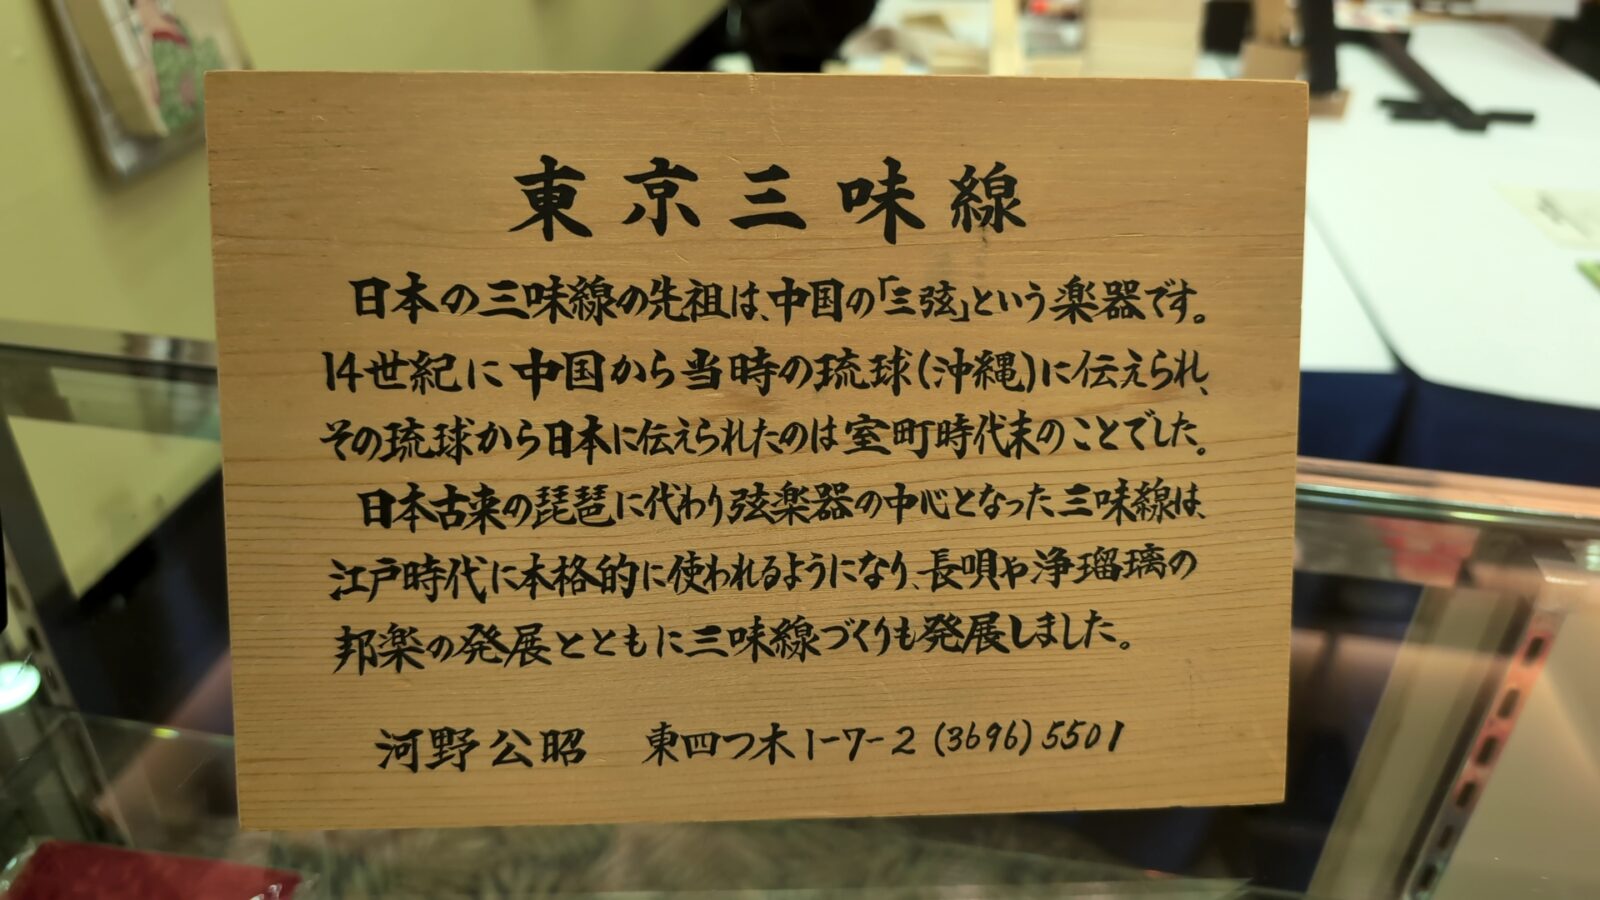 東京三味線
日本の三味線の先祖は、中国の「三弦」という楽器です。
14世紀に中国から当時の琉球(沖縄)に伝えられ、
その琉球から日本に伝えられたのは室町時代末のことでした。
日本古来の琵琶に代わり弦楽器の中心となった三味線は、
江戸時代に本格的に使われるようになり、長唄や浄瑠璃の
邦楽の発展とともに三味線づくりも発展しました。
河野公昭 東四つ木1-7-2 (3696)5501